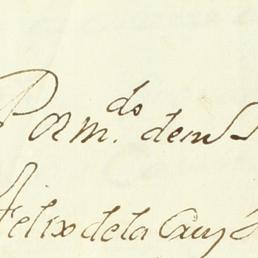 Pam.do dem
Felix de la Cruz